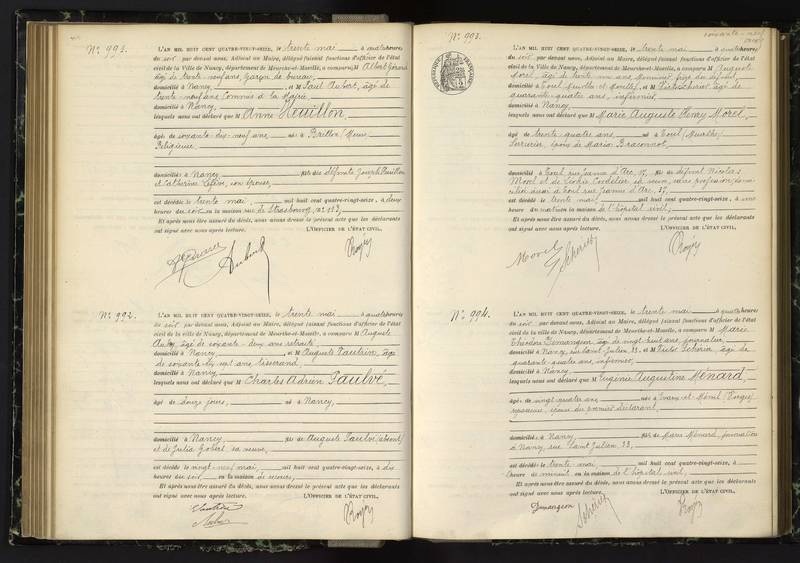 N° 991.
L'AN MIL HUIT CENT QUATRE-VINGT-SEIZE, le trente mai à quatre heures
du soir par devant nous, Adjoint au Maire, délégué faisant fonctions d'officier de l'état
civil de la Ville de Nancy, département de Meurthe-et-Moselle, a comparu M Albert Gérard
âgé de trente-neuf ans, garçon de bureau,
domicilié à Nancy et M Paul Aubert, âgé de
trente-neuf ans Commis à la Mairie
domicilié à Nancy
lesquels nous ont déclaré que M Anne
âgée de soixante-dix-neuf ans née à Brillon /Meuse
Religieuse,
domiciliée à Nancy fille des défunts Joseph
et Catherine son épouse,
est décédée le trente mai mil huit cent quatre-vingt-seize, à deux
heures du soir en la maison rue de Strasbourg, n°
Et après nous être assuré du décès, nous avons dressé le présent acte que les déclarants
ont signé avec nous après lecture. L'OFFICIER DE L'ÉTAT CIVIL,
N° 992.
L'AN MIL HUIT CENT QUATRE-VINGT-SEIZE, le trente mai à quatre heures
du soir par devant nous, Adjoint au Maire, délégué faisant fonctions d'officier de l'état
civil de la Ville de Nancy, département de Meurthe-et-Moselle, a comparu M Auguste
Aubry, âgé de soixante-deux ans retraité
domicilié à Nancy et M Auguste âgé
de soixante ans tisserand
domicilié à Nancy
lesquels nous ont déclaré que M Charles Adrien Paulvé,
âgé de douze jours, né à Nancy,
domicilié à Nancy fils de Auguste Paulvé (absent)
et de Julia
est décédé le vingt-neuf mai, mil huit cent quatre-vingt-seize, à dix
heures du soir en la maison
Et après nous être assuré du décès, nous avons dressé le présent acte que les déclarants
ont signé avec nous après lecture. L'OFFICIER DE L'ÉTAT CIVIL,
N° 993.
RÉPUBLIQUE FRANÇAISE
L'AN MIL HUIT CENT QUATRE-VINGT-SEIZE, le trente mai à quatre heures
du soir par devant nous, Adjoint au Maire, délégué faisant fonctions d'officier de l'état
civil de la Ville de Nancy, département de Meurthe-et-Moselle, a comparu M Auguste
Morel, âgé de trente ans Menuisier frère du défunt,
domicilié à Toul (Meurthe et Moselle) et M Victor Scherier âgé de
quarante-quatre ans, infirmier,
domicilié à Nancy
lesquels nous ont déclaré que M Marie Auguste Henry Morel,
âgé de trente-quatre ans né à Toul (Meurthe)
Serrurier, époux de Maria Braconnot
domicilié à Toul rue Jeanne d'Arc, fils de défunt Nicolas
Morel et de Cordelier sa veuve, sans profession domi-
ciliée à Toul rue Jeanne d'Arc,
est décédé le trente mai mil huit cent quatre-vingt-seize, à
heures du matin en la maison de l'hôpital civil,
Et après nous être assuré du décès, nous avons dressé le présent acte que les déclarants
ont signé avec nous après lecture. L'OFFICIER DE L'ÉTAT CIVIL,
Morel
N° 994.
L'AN MIL HUIT CENT QUATRE-VINGT-SEIZE, le trente mai à quatre heures
du soir par devant nous, Adjoint au Maire, délégué faisant fonctions d'officier de l'état
civil de la Ville de Nancy, département de Meurthe-et-Moselle, a comparu M Marie
Théodore Demangeon, âgé de vingt-huit ans, journalier
domicilié à Nancy, rue Saint Julien 23, et M Victor Scherier, âgé de
quarante-quatre ans, infirmier,
domicilié à Nancy
lesquels nous ont déclaré que M Eugénie Augustine Ménard,
âgée de vingt-quatre ans née à (Vosges)
épouse du premier déclarant,
domiciliée à Nancy, fille de Marie Ménard, journalière
à Nancy, rue Saint Julien, 23,
est décédée le trente mai mil huit cent quatre-vingt-seize, à
heure de minuit en la maison de l'hôpital civil,
Et après nous être assuré du décès, nous avons dressé le présent acte que les déclarants
ont signé avec nous après lecture. L'OFFICIER DE L'ÉTAT CIVIL,
Demangeon